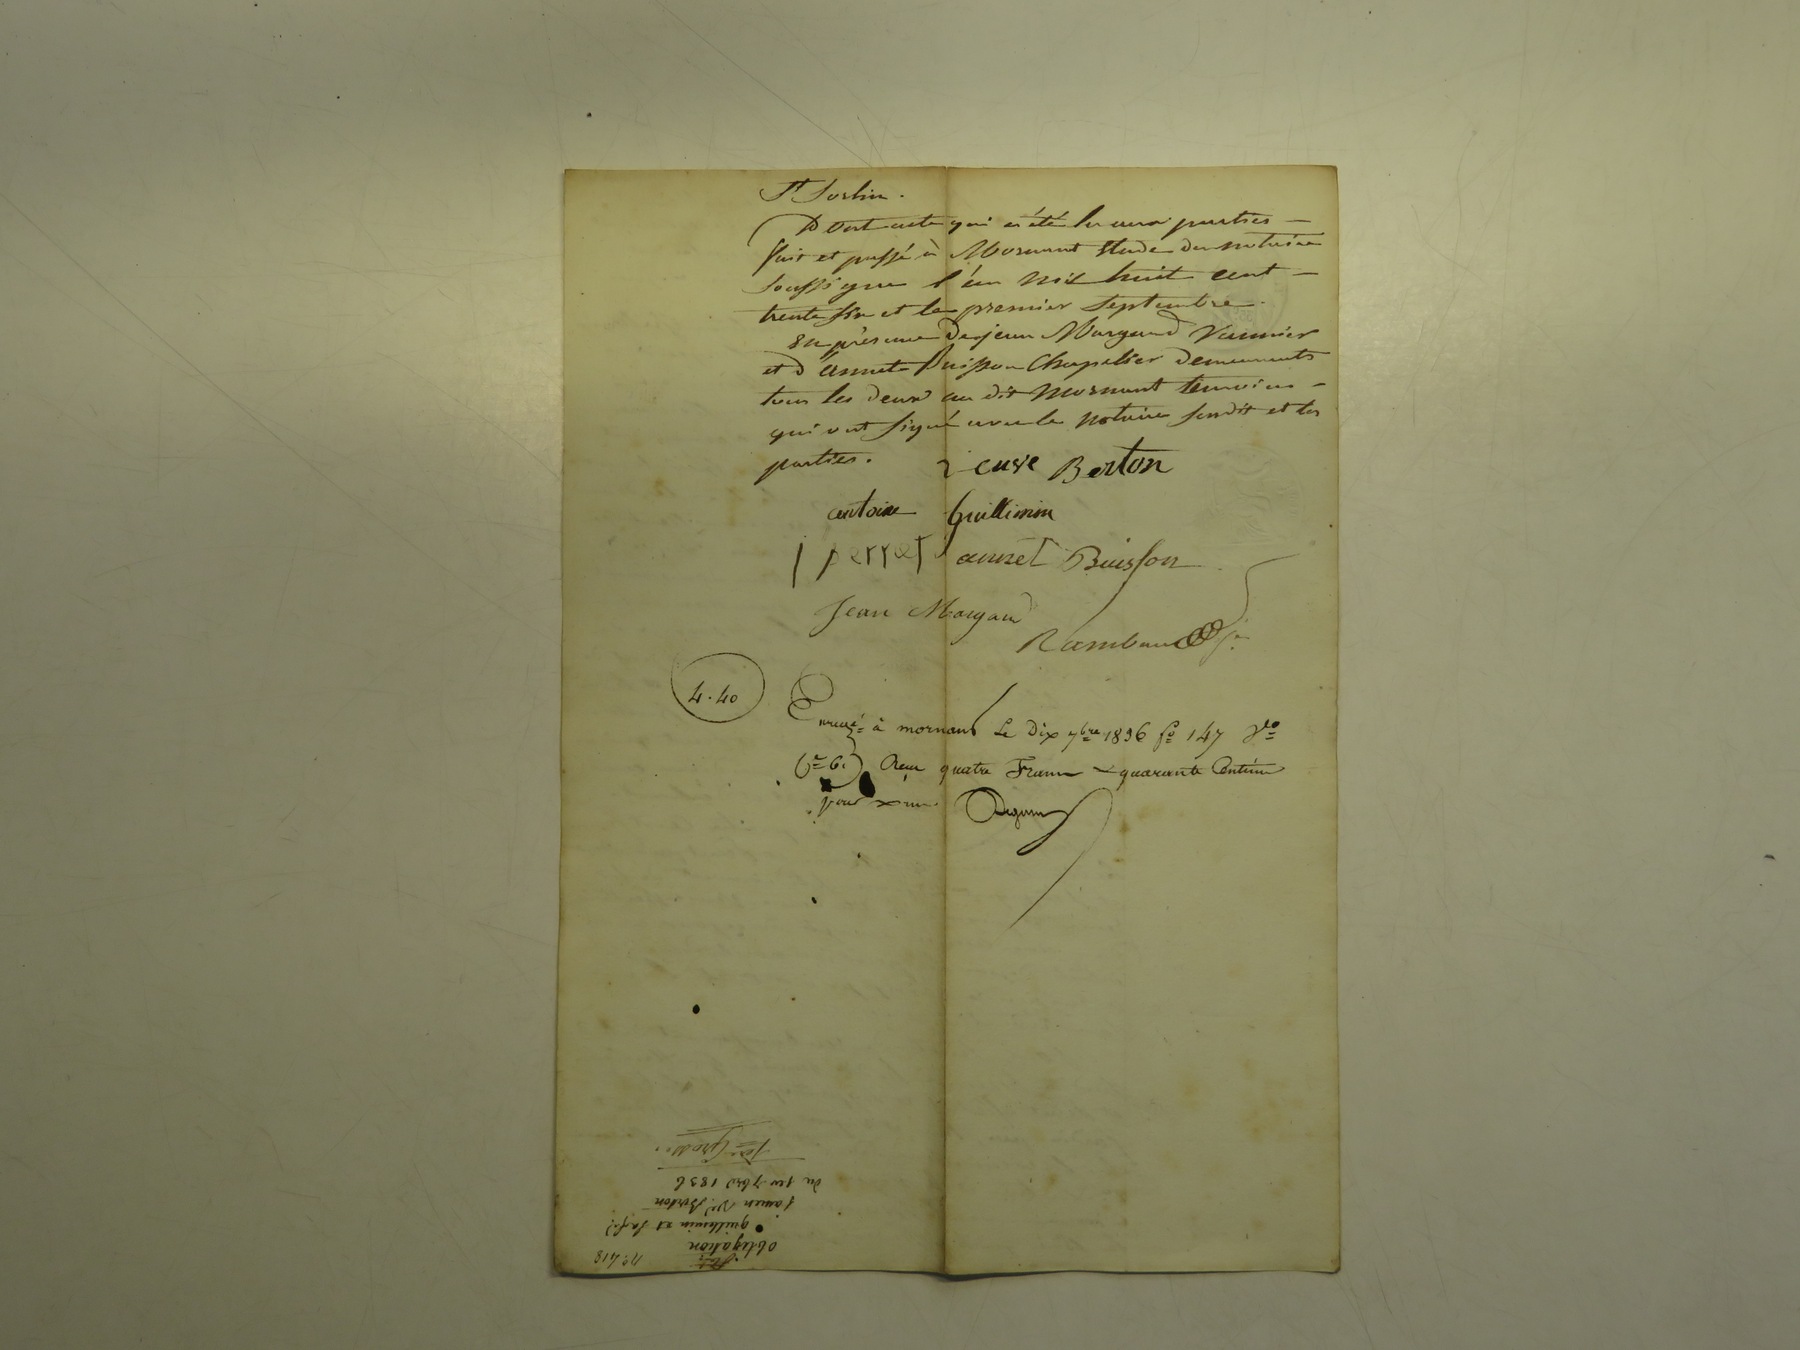 St Sorlin.
Dont acte qui a été lu aux parties —
fait et passé à Mornant Etude du notaire
soussigné l'an mil huit cent —
trente six et le premier septembre.
En présence de jean Margand Vannier
et d'annet Buisson Chapelier demeurants
tous les deux au dit Mornant témoins —
qui ont signé avec le notaire susdit et les
parties. veuve Berton
antoine Guillimin
j perret annet Buisson
Jean Margand
Rambaud
4.40
à mornant Le Dix 7bre 1836 fo 147 Vo
Reçu quatre Francs quarante Centimes
pour
No 418
obligation
guillimin et sa fe
à Ve Berton
du 1er 7bre 1836